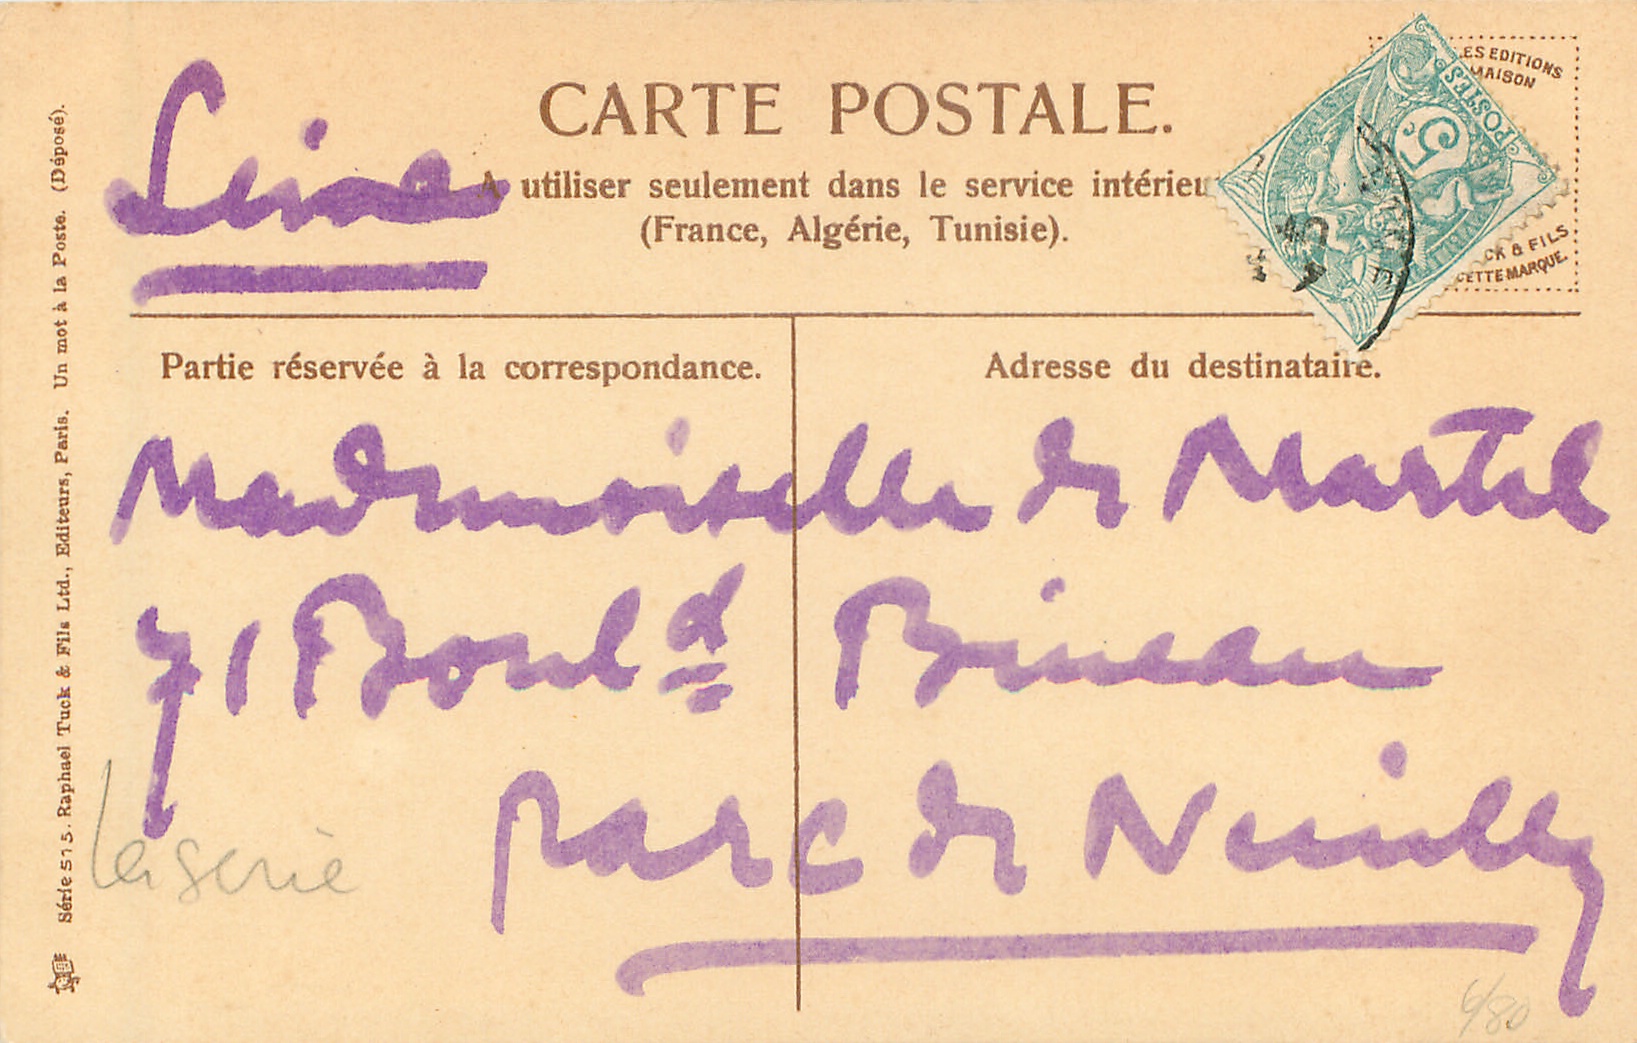 CARTE POSTALE.
A utiliser seulement dans le service intérieu
(France, Algérie, Tunisie).
Seine
ES EDITIONS
MAISON
POSTES
5c
CK & FILS
CETTE MARQUE.
Partie réservée à la correspondance.
Adresse du destinataire.
Mademoiselle de Martel
71 Bould Bineau
parc de Neuilly
la serie
6/80
Série 515. Raphael Tuck & Fils Ltd., Editeurs, Paris. Un mot à la Poste. (Déposé).